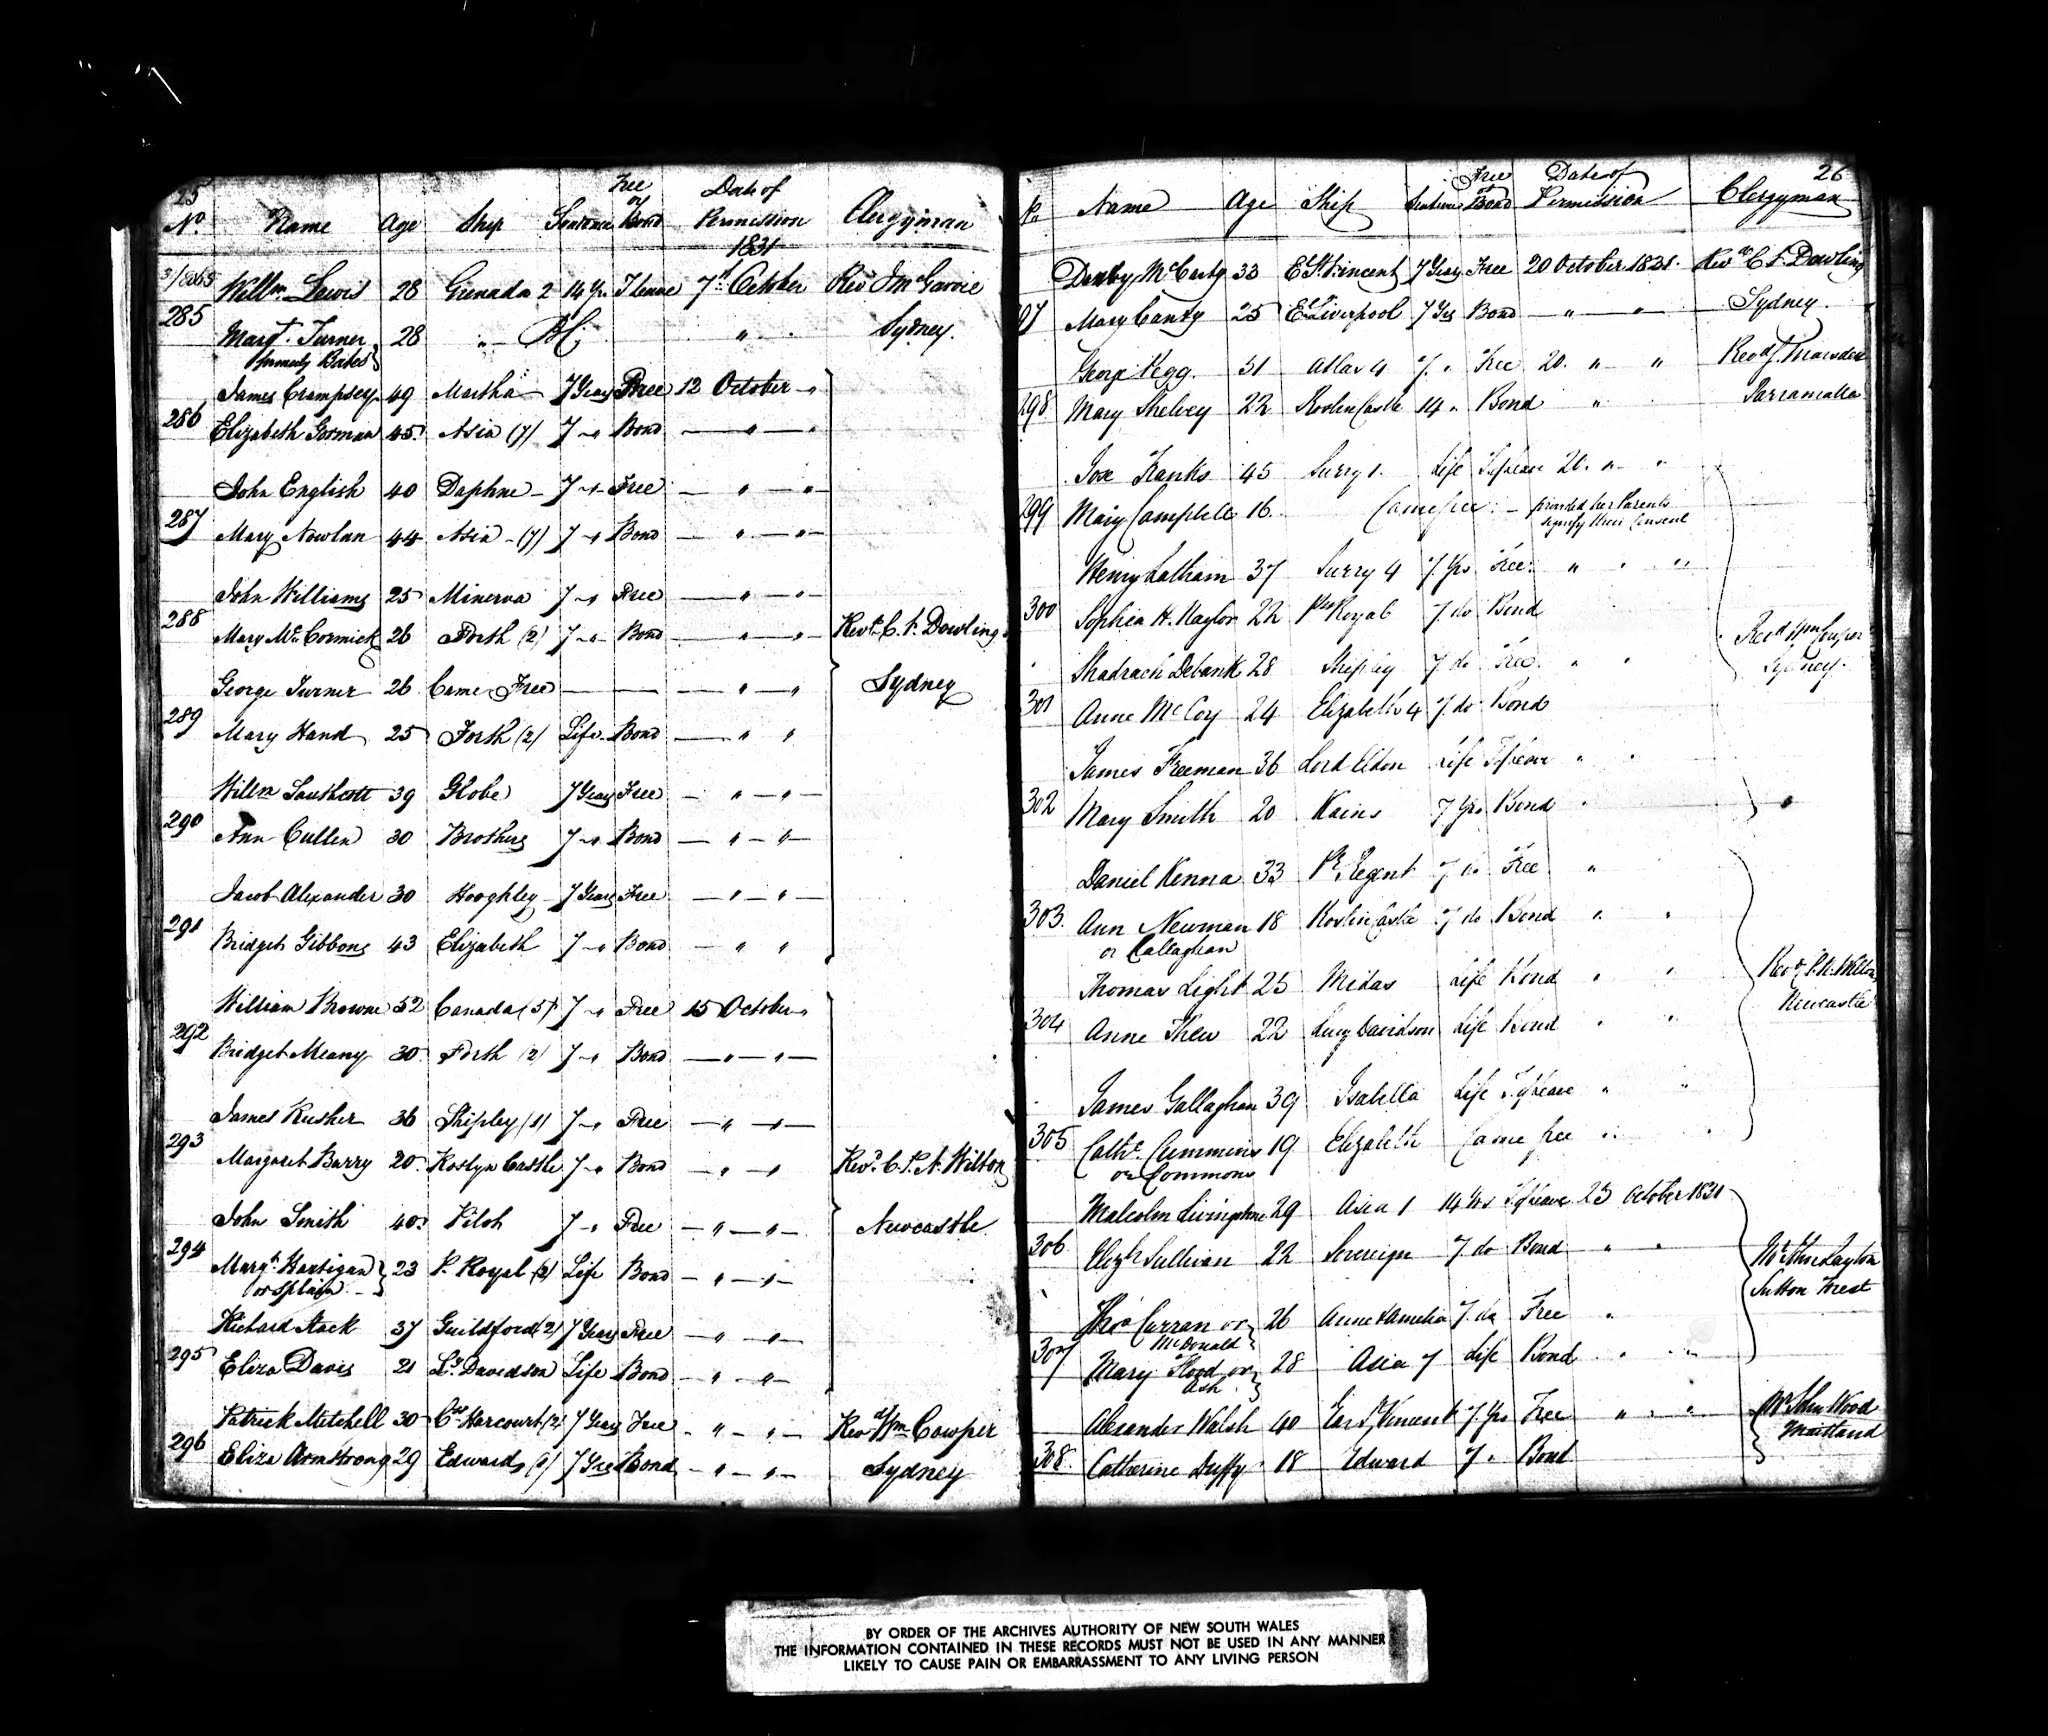 25
No. Name Age Ship Sentence Free or Bond Date of Permission Clergyman
1831
Willm Lewis 28 Grenada 2 14 Yrs T leave 7th October Revd J McGarvie
285 Margt. Turner 28 " " " Sydney.
formerly Bates
James Crampsey 49 Martha 7 Years Free 12 October "
286 Elizabeth Gorman 45 Asia (7) 7 " Bond " "
John English 40 Daphne 7 " Free " "
287 Mary Nowlan 44 Asia (7) 7 " Bond " "
John Williams 25 Minerva 7 " Free " "
288 Mary McCormick 26 Forth (2) 7 " Bond " " Revd. C. F. Dowling
George Turner 26 Came Free " " Sydney
289 Mary Hand 25 Forth (2) Life Bond " "
Willm Southcott 39 Globe 7 Years Free " "
290 Ann Cullen 30 Brothers 7 " Bond " "
Jacob Alexander 30 Hooghley 7 Years Free " "
291 Bridget Gibbons 43 Elizabeth 7 " Bond " "
William Browne 52 Canada (5) 7 " Free 15 October "
292 Bridget Meany 30 Forth (2) 7 " Bond " "
James Rusher 36 Shipley (1) 7 " Free " "
293 Margaret Barry 20 Roslyn Castle 7 " Bond " " Revd. C. P. N. Wilton
John Smith 40 Pilot 7 " Free " " Newcastle
294 Margt. Hartigan 23 P. Royal (2) Life Bond " "
or Splain
Richard Stack 37 Guildford (2) 7 Years Free " "
295 Eliza Davis 21 Ly. Davidson Life Bond " "
Patrick Mitchell 30 Css Harcourt (2) 7 Years Free " " Revd Wm Cowper
296 Eliza Armstrong 29 Edward 7 Yrs Bond " " Sydney
26
No Name Age Ship Sentence Free or Bond Date of Permission Clergyman
Denby McCarty 33 E St Vincent 7 Years Free 20 October 1831. Revd C F Dowling
97 Mary Canty 25 El Liverpool 7 Yrs Bond " " Sydney.
George Pegg 31 Atlas 4 7 " Free 20 " " Revd S. Marsden
298 Mary Shelvey 22 Roslin Castle 14 " Bond " Parramatta
Jos Franks 45 Surry 1. Life T of leave 20. " "
299 Mary Campbell 16. Came free. provided her Parents
signify their Consent
Henry Latham 37 Surry 4 7 Yrs Free " "
300 Sophia H. Naylor 22 Pss Royal 7 do Bond Revd Wm Cowper
Shadrach Debank 28 Shipley 7 do Free " Sydney.
301 Anne McCoy 24 Elizabeth 4 7 do Bond
James Freeman 36 Lord Eldon Life T of leave "
302 Mary Smith 20 Kains 7 Yrs Bond "
Daniel Kenna 33 Pr. Regent 7 do Free "
303. Ann Newman 18 Roslin Castle 7 do Bond " "
or Callaghan
Thomas Light 25 Midas Life Bond " " Revd C. P. N. Wilton
Newcastle
304 Anne Thew 22 Lucy Davidson Life Bond " "
James Gallaghan 39 Isabella Life T of leave " "
305 Cathe. Cummins 19 Elizabeth Came free " "
or Commons
Malcolm Livingstone 29 Asia 1 14 Yrs T of leave 25 October 1831
306 Elizh Sullivan 22 Sovereign 7 do Bond " " Mr Jno Layton
Sutton Forest
Thos Curran or 26 Anne & Amelia 7 do Free "
McDonald
307 Mary Flood or 28 Asia 7 Life Bond " "
Ash
Alexander Walsh 40 Earl St Vincent 7 Yrs Free " " Mr John Wood
308. Catherine Duffy 18 Edward 7 " Bond Maitland
BY ORDER OF THE ARCHIVES AUTHORITY OF NEW SOUTH WALES
THE INFORMATION CONTAINED IN THESE RECORDS MUST NOT BE USED IN ANY MANNER
LIKELY TO CAUSE PAIN OR EMBARRASSMENT TO ANY LIVING PERSON